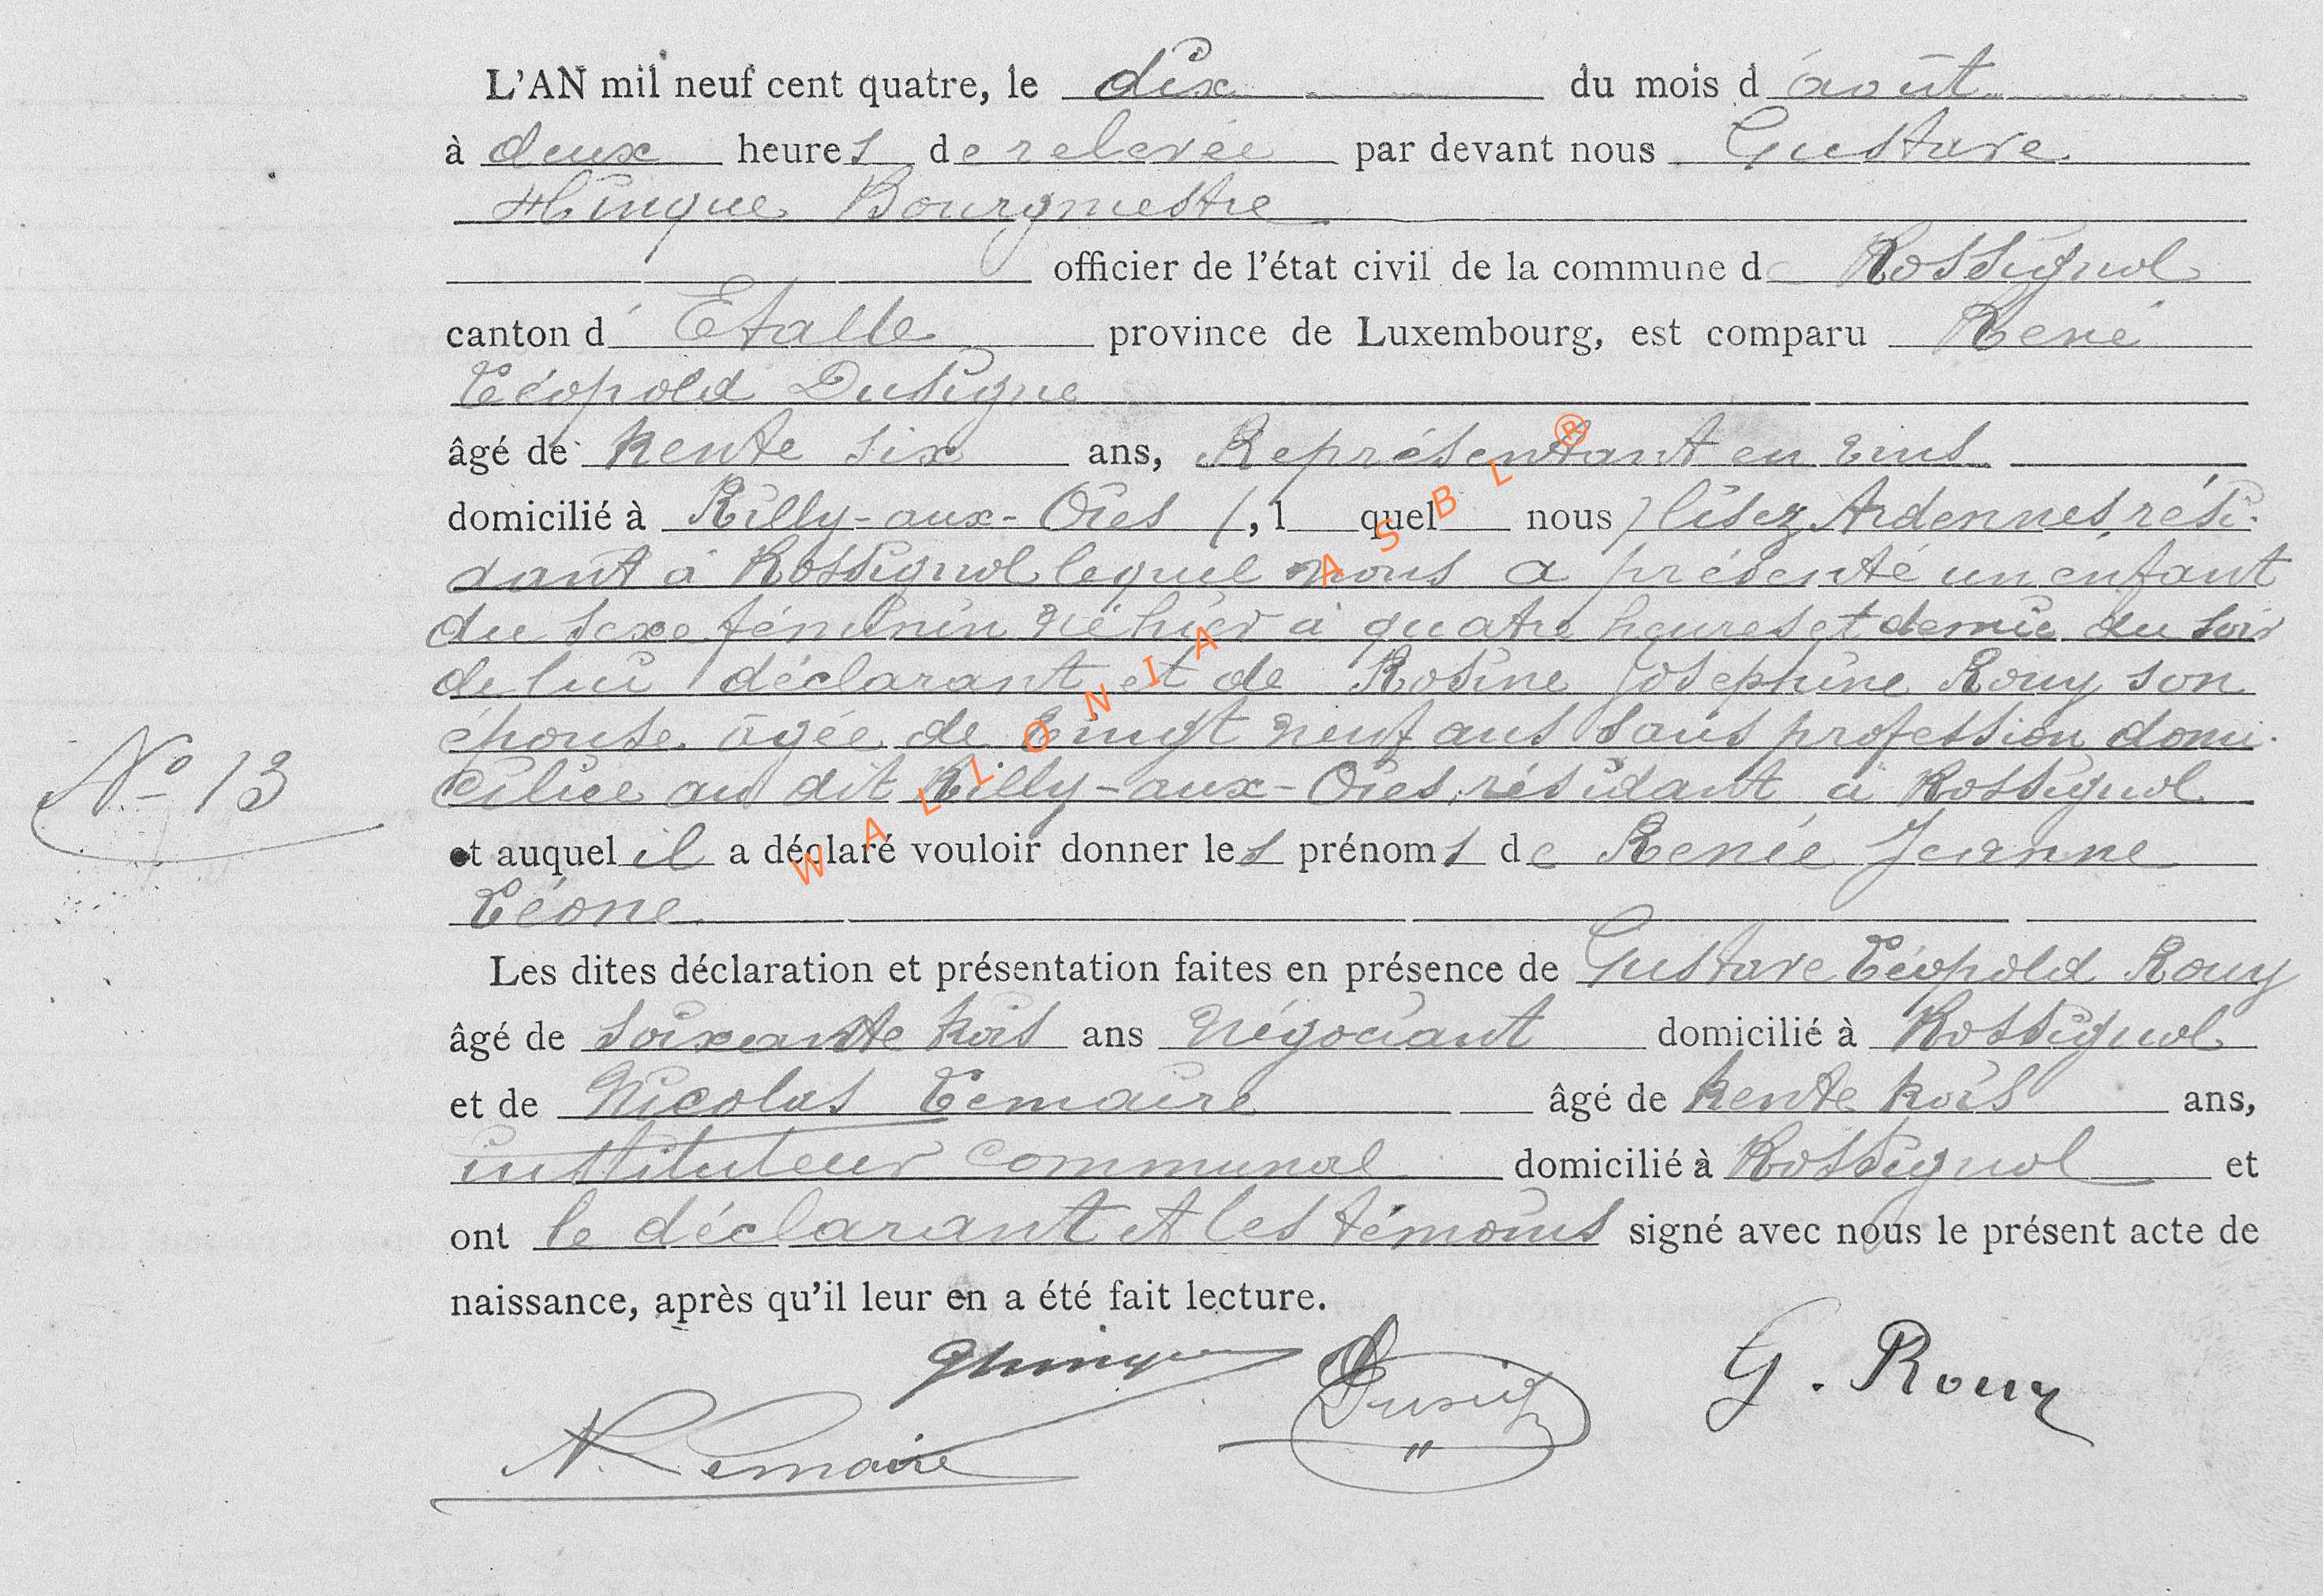 L'AN mil neuf cent quatre, le dix du mois d'août
à deux heures de relevée par devant nous Gustave
Hinque Bourgmestre
officier de l'état civil de la commune de Rossignol
canton d'Etalle province de Luxembourg, est comparu René
Léopold Dusigne
âgé de trente six ans, Représentant en vins
domicilié à Rilly-aux-Oies (, l quel nous ) lisez Ardennes rési-
dant à Rossignol lequel nous a présenté un enfant
du sexe féminin né hier à quatre heures et demie du soir
de lui déclarant et de Rosine Joséphine Rouy son
épouse âgée de vingt neuf ans sans profession domi-
ciliée au dit Rilly-aux-Oies, résidant à Rossignol
N° 13
et auquel il a déclaré vouloir donner les prénoms de Renée Jeanne
Léone
Les dites déclaration et présentation faites en présence de Gustave Léopold Rouy
âgé de soixante trois ans négociant domicilié à Rossignol
et de Nicolas Lemaire âgé de trente trois ans,
instituteur communal domicilié à Rossignol et
ont le déclarant et les témoins signé avec nous le présent acte de
naissance, après qu'il leur en a été fait lecture.
G. Rouy
N. Lemaire
WALLONIA ASBL ®